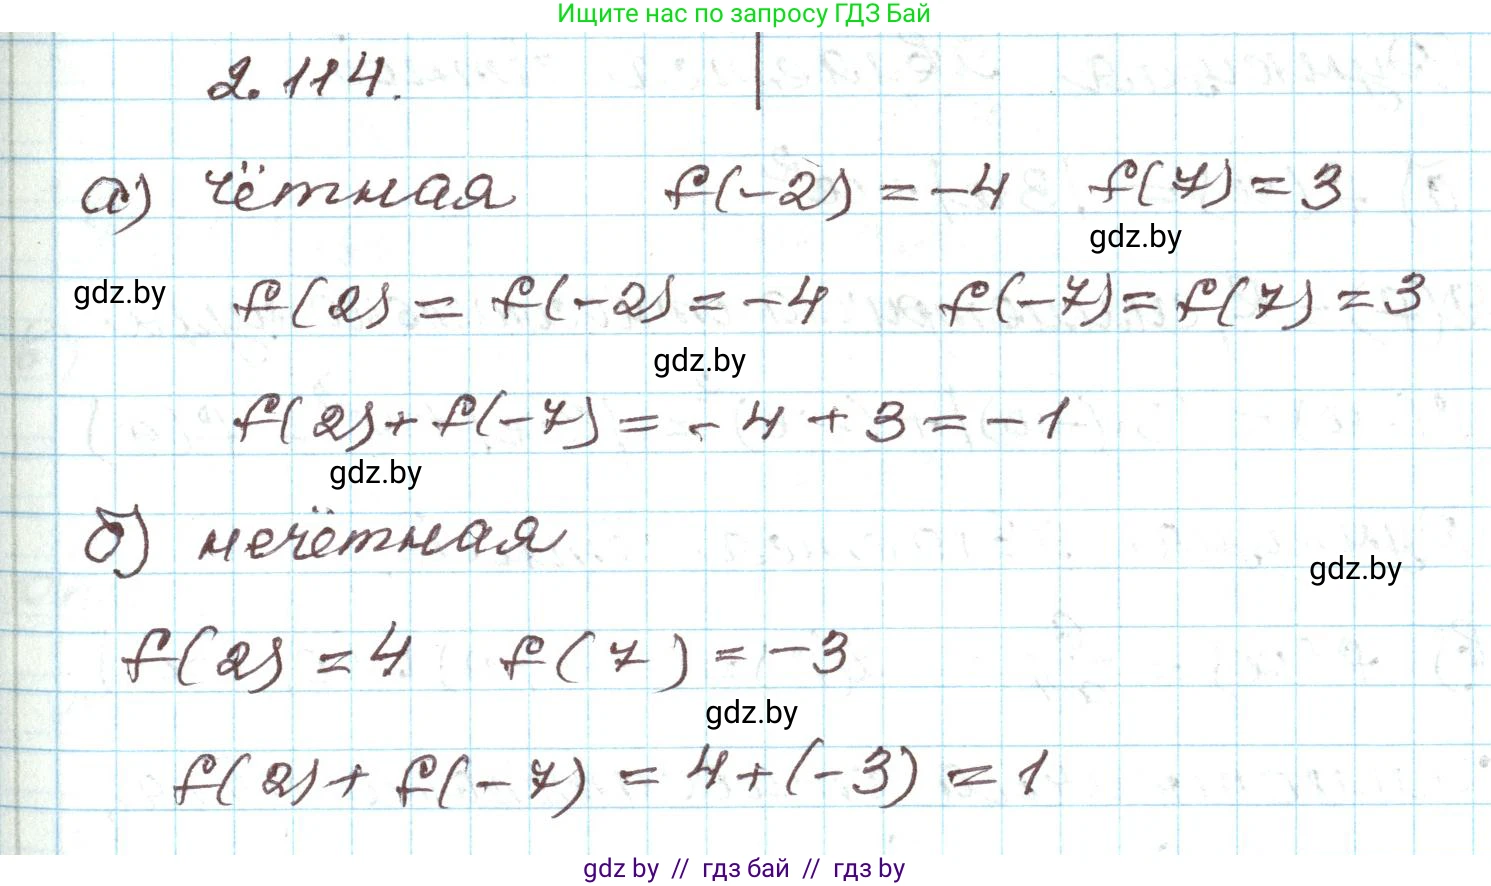 Ищите нас по запросу ГДЗ Бай
2.114.
а) чётная f(-2) = -4 f(7) = 3
gdz.by
gdz.by
f(2) = f(-2) = -4 f(-7) = f(7) = 3
gdz.by
f(2) + f(-7) = -4 + 3 = -1
gdz.by
б) нечётная
gdz.by
f(2) = 4 f(7) = -3
gdz.by
f(2) + f(-7) = 4 + (-3) = 1
gdz by // гдз бай // гдз by